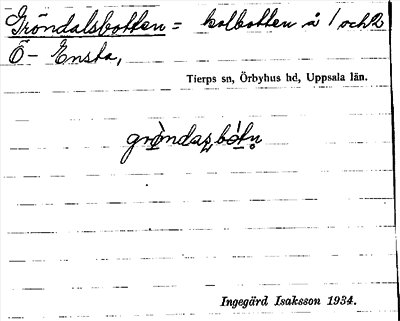 Gröndalsbotten = kolbotten å 1 och 2
Ö- Ensta,
Tierps sn, Örbyhus hd, Uppsala län.
Ingegärd Isaksson 1934.